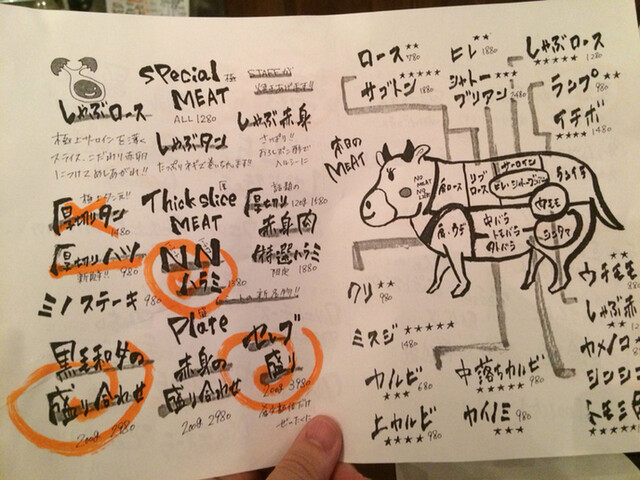 SPecial
MEAT
ALL 1280
STAFFが
しゃぶロース
極上サーロインを薄く
スライス、こだわり赤卵
につけてめしあがれ!!
しゃぶタン
たっぷりネギと巻いちゃいます!!
しゃぶ赤身
さっぱり!!
おろしポン酢で
ヘルシーに
厚切りタン
1480
厚切りハツ
980
ミノステーキ 980
Thick slice
MEAT
NN
ハラミ
1380
話題の
厚切り
赤身肉
特選ハラミ
限定 1880
Plate
黒毛和牛の
盛り合わせ
200g 2980
赤身の
盛り合わせ
200g 2980
セレブ
盛り
200g 3980
本日のMEAT
ロース
780
サブトン
★★★★★ 1880
ヒレ
★★ 1880
シャトー
ブリアン
しゃぶロース
★★★★★ 1280
ランプ
★★ 980
イチボ
★★★★ 1480
NO
MEAT
NO
LIFE
肩ロース
リブ
ロース
サーロイン
ヒレ・シャトーブリアン
肩・ウデ
中バラ
トモバラ
外バラ
カメノコ
シンタマ
クリ
★★ 980
ミスジ ★★★★★
1480
カルビ
★★★★ 680
上カルビ
★★★★ 980
中落ちカルビ
★★★★★ 980
カイノミ
★★★★ 980
ウチモモ
しゃぶ赤
カメノコ
シンシン
トモミ